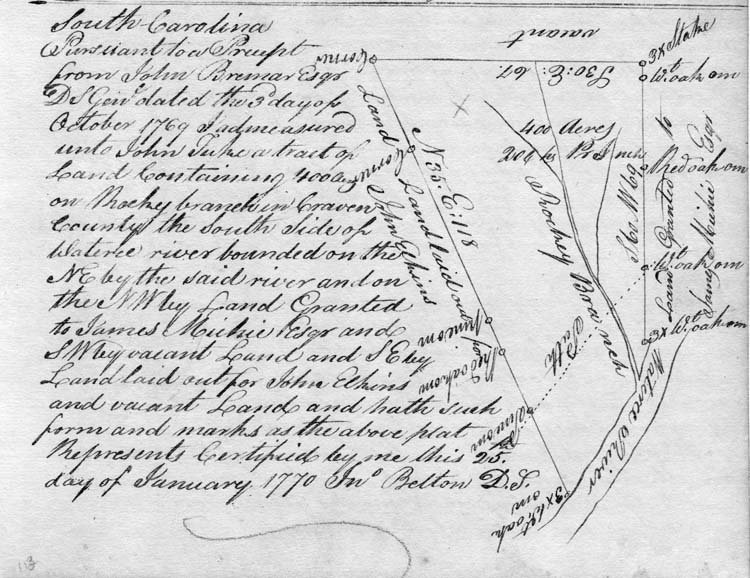 South Carolina
Pursuant to a Precept
from John Bremar Esqr
D S Genl. dated the 3d day of
October 1769 I admeasured
unto John Tuke a tract of
Land Containing 400 acrs
on Rockey branch in Craven
County the South Side of
Wateree river bounded on the
NE by the said river and on
the NW by Land Granted
to James Michie Esqr and
SW by vacant Land and SE by
Land laid out for John Elkins
and vacant Land and hath such
form and marks as the above plat
Represents Certified by me this 25.
day of January 1770 Jno. Belton D.S.
vacant
S 30: E: 67.
3x Stake
Wt. oak om
Red oak om
Wt. oak om
3x Wt. oak om
Land Granted to
James Michie Esqr
400 Acres
20 Chs Pr Inch
Rockey Branch
Path
Wateree River
N 35: E: 118
Land laid out for
John Elkins
Land
Corner
Corner
Red oak om
3x Wt. oak
om
113